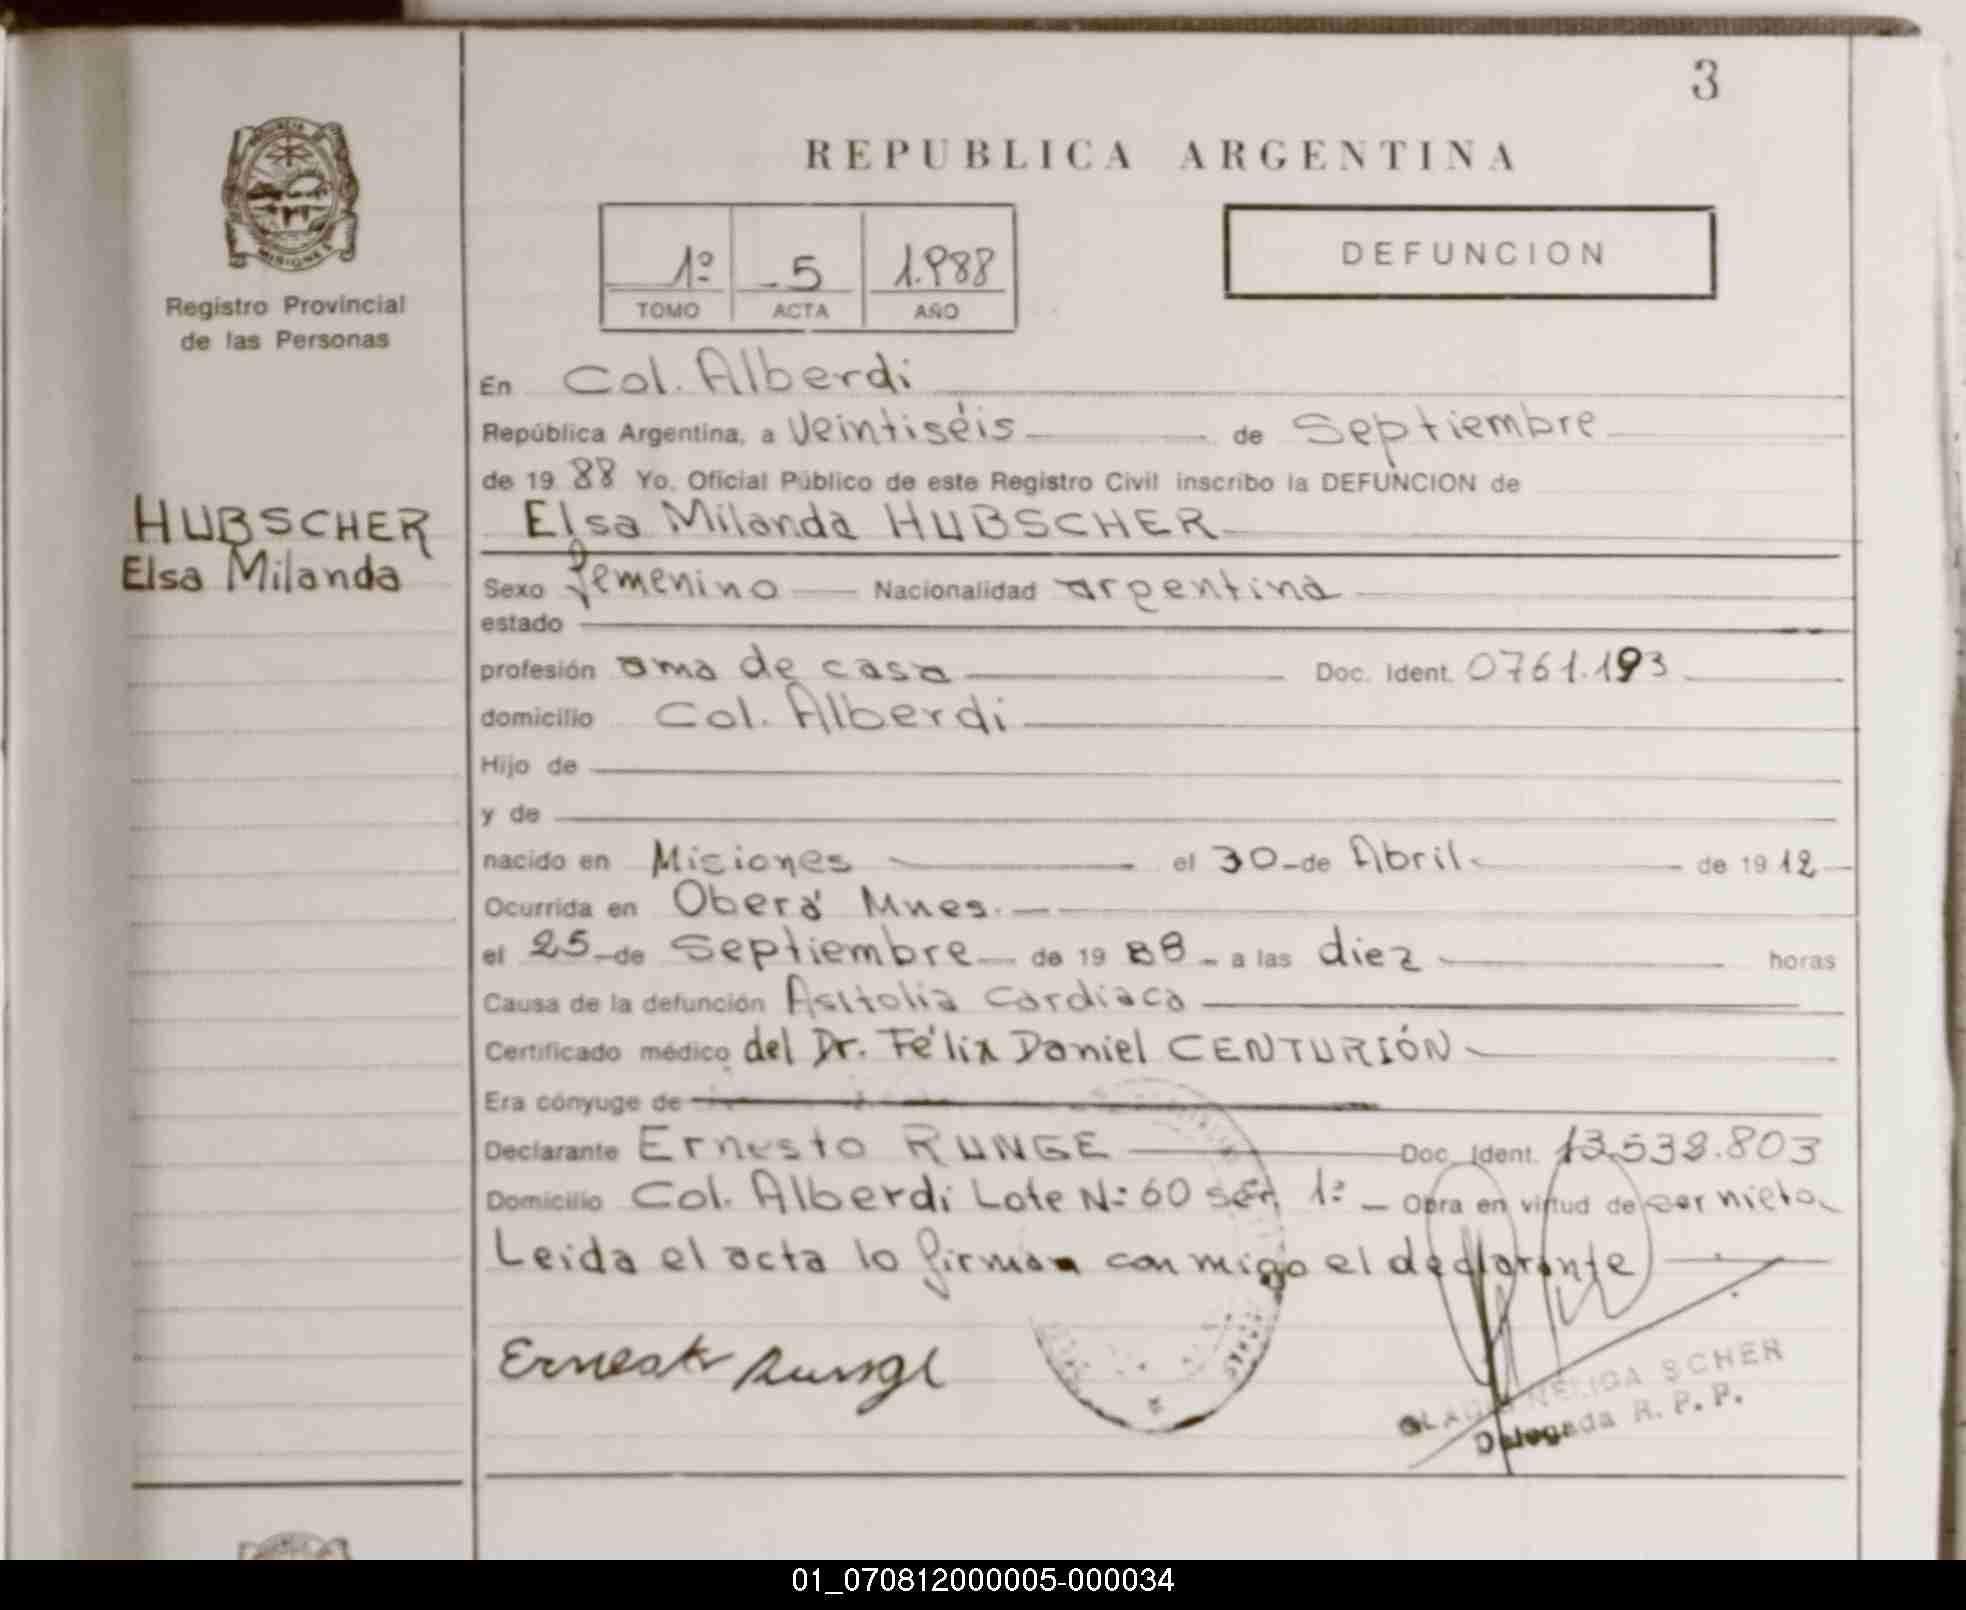 3
REPUBLICA ARGENTINA
MISIONES
Registro Provincial
de las Personas
1º 5 1.988
TOMO ACTA AÑO
DEFUNCION
En Col. Alberdi
República Argentina, a Veintiséis de Septiembre
de 19 88 Yo, Oficial Público de este Registro Civil inscribo la DEFUNCION de
HUBSCHER
Elsa Milanda
Elsa Milanda HUBSCHER
Sexo femenino Nacionalidad argentina
estado
profesión ama de casa Doc. Ident. 0761.193
domicilio Col. Alberdi
Hijo de
y de
nacido en Misiones el 30 de Abril de 19 12
Ocurrida en Oberá Mnes.
el 25 de Septiembre de 19 88 a las diez horas
Causa de la defunción Asitolia Cardiaca
Certificado médico del Dr. Félix Daniel CENTURIÓN
Era cónyuge de
Declarante Ernesto RUNGE Doc. Ident. 13.538.803
Domicilio Col. Alberdi Lote Nº 60 sec. 1º Obra en virtud de ser nieto
Leida el acta lo firman con migo el declarante
Ernesto Runge
SCHER
Delegada R. P. P.
01_070812000005-000034